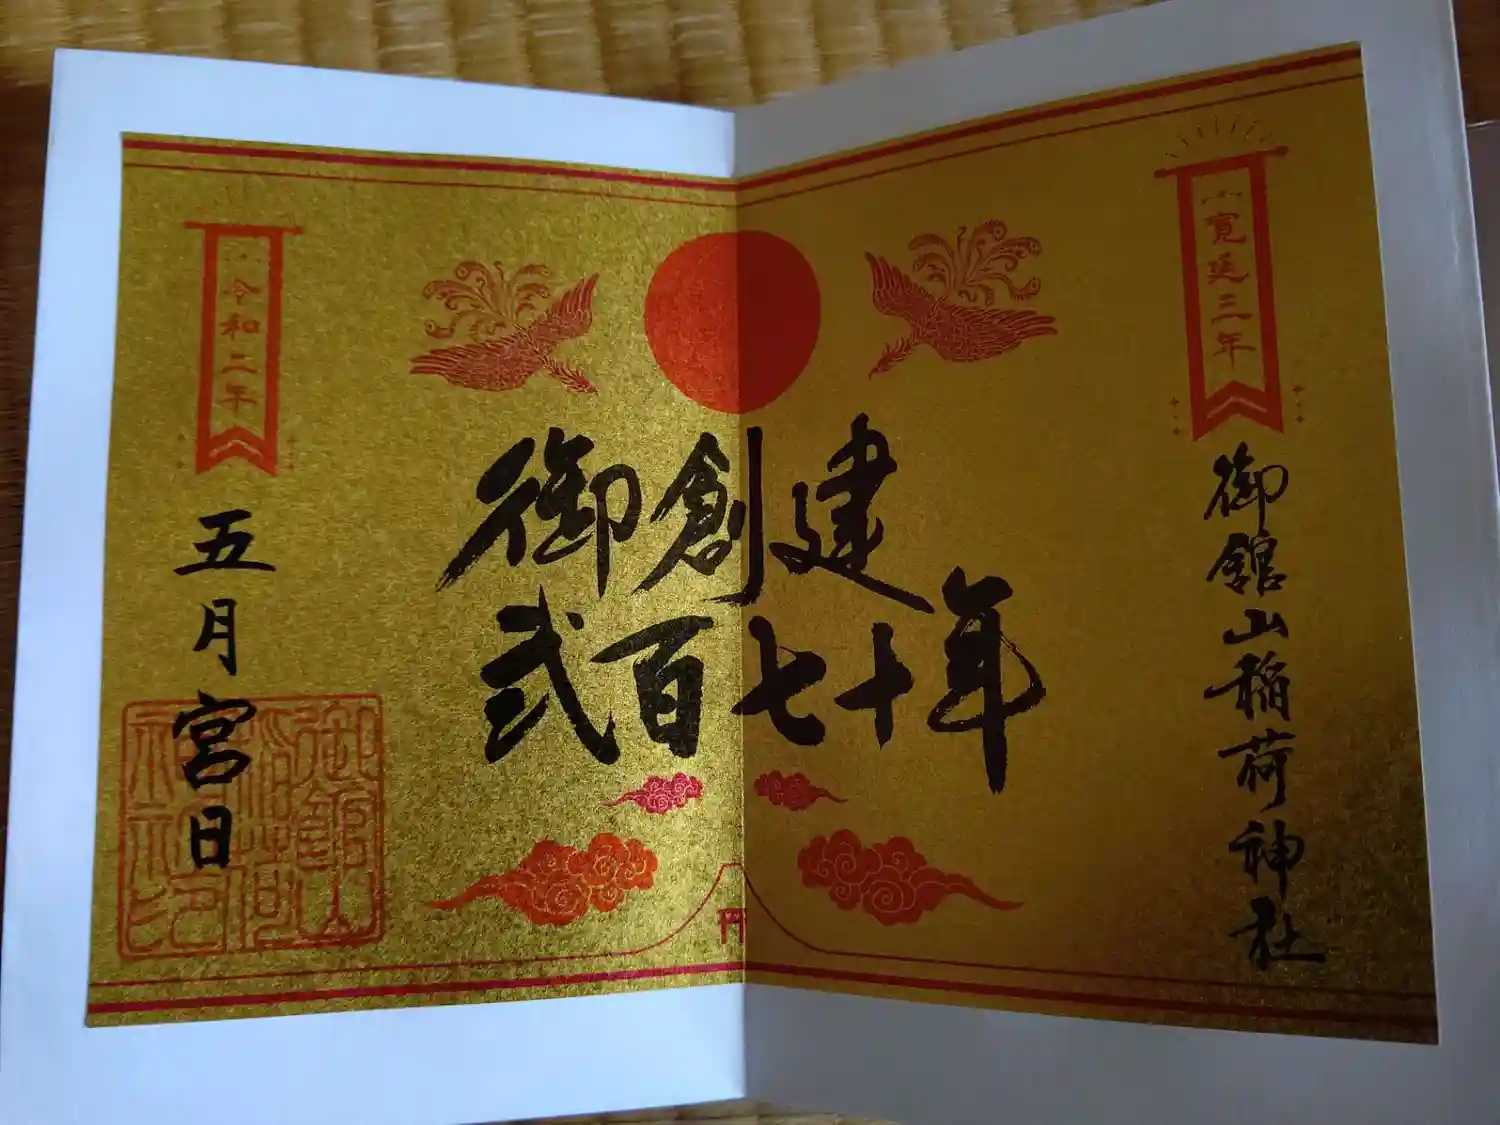 寛延三年
御館山稲荷神社
御創建
弐百七十年
令和二年
五月宮日
御館山
稲荷